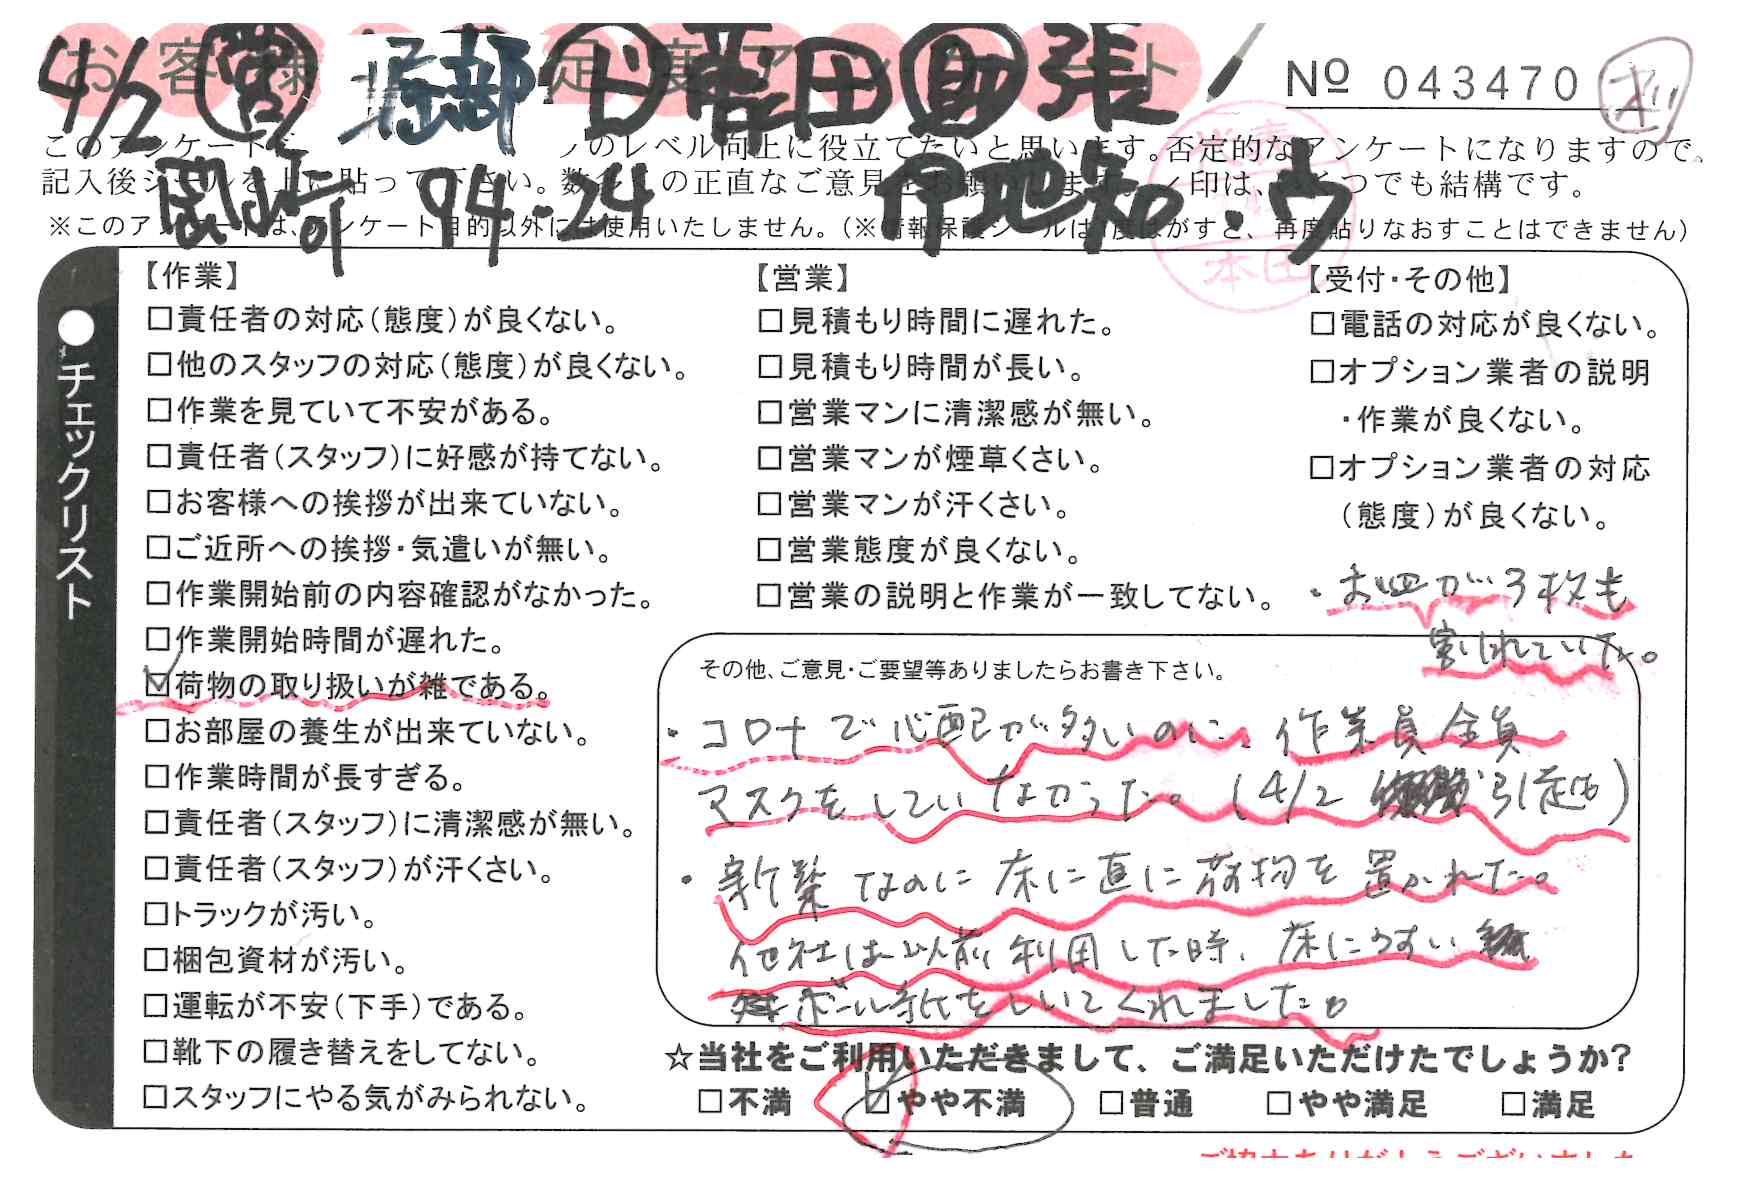 お客様満足度アンケート
4/2 営 堀部 ド 菅田 助 張
№ 043470
このアンケートを ノのレベル向上に役立てたいと思います。否定的なアンケートになりますので、
記入後シールを上に貼って下さい。数多くの正直なご意見をお願いします。✓印は、いくつでも結構です。
関町 94-24 伊地知・ウ
※このアンケートは、アンケート目的以外には使用いたしません。（※情報保護シールは1度はがすと、再度貼りなおすことはできません）
本田
●チェックリスト
【作業】
□責任者の対応（態度）が良くない。
□他のスタッフの対応（態度）が良くない。
□作業を見ていて不安がある。
□責任者（スタッフ）に好感が持てない。
□お客様への挨拶が出来ていない。
□ご近所への挨拶・気遣いが無い。
□作業開始前の内容確認がなかった。
□作業開始時間が遅れた。
☑荷物の取り扱いが雑である。
□お部屋の養生が出来ていない。
□作業時間が長すぎる。
□責任者（スタッフ）に清潔感が無い。
□責任者（スタッフ）が汗くさい。
□トラックが汚い。
□梱包資材が汚い。
□運転が不安（下手）である。
□靴下の履き替えをしてない。
□スタッフにやる気がみられない。
【営業】
□見積もり時間に遅れた。
□見積もり時間が長い。
□営業マンに清潔感が無い。
□営業マンが煙草くさい。
□営業マンが汗くさい。
□営業態度が良くない。
□営業の説明と作業が一致してない。
【受付・その他】
□電話の対応が良くない。
□オプション業者の説明
・作業が良くない。
□オプション業者の対応
（態度）が良くない。
・お皿が3枚も
割れていた。
その他、ご意見・ご要望等ありましたらお書き下さい。
・コロナで心配が多いのに、作業員全員
マスクをしていなかった。（4/2 引越）
・新築なのに床に直に荷物を置かれた。
他社は以前利用した時、床にうすい
ボール紙をしいてくれました。
☆当社をご利用いただきまして、ご満足いただけたでしょうか？
□不満 ☑やや不満 □普通 □やや満足 □満足
ご協力ありがとうございました